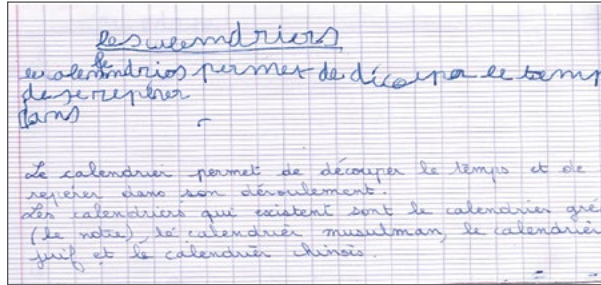 Les calendriers
le calendrios permet de découper le temp
de se repérer
dans
Le calendrier permet de découper le temps et de
repérer dans son déroulement.
Les calendriers qui existent sont le calendrier gré
(le notre), le calendrier musulman, le calendrier
juif et le calendrier chinois.